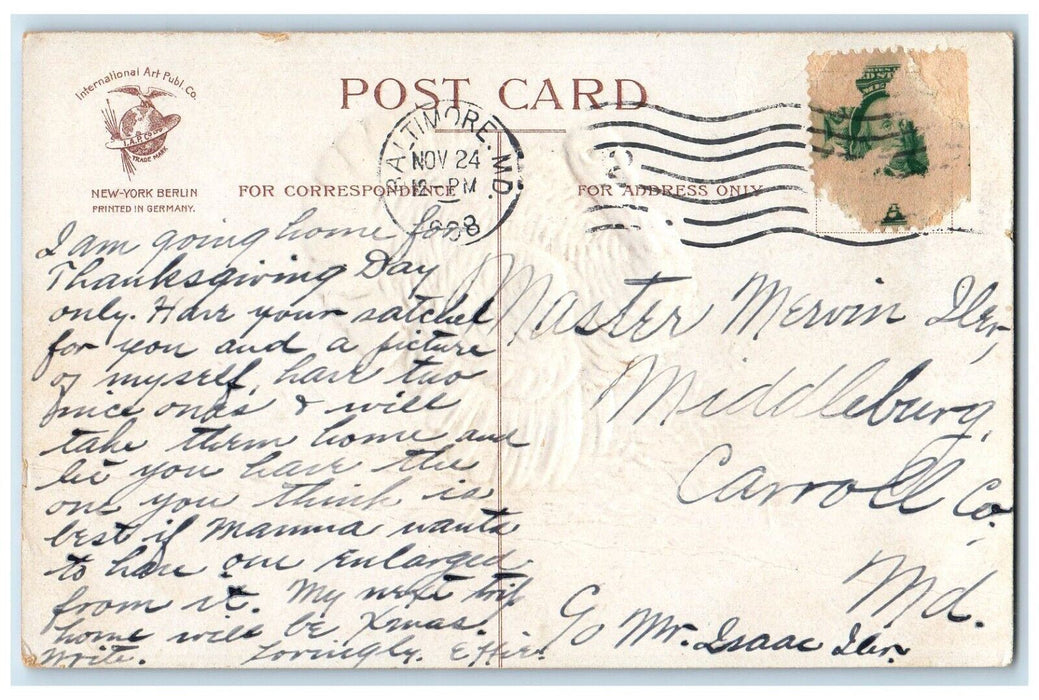 International Art Publ. Co.
TRADE MARK
NEW-YORK BERLIN
PRINTED IN GERMANY.
POST CARD
BALTIMORE. MD.
NOV 24
12 PM
1908
FOR CORRESPONDENCE
FOR ADDRESS ONLY
I am going home for
Thanksgiving Day
only. Have your satchel
for you and a picture
of myself, have two
nice ones & will
take them home and
let you have the
one you think is
best if Mamma wants
to have one enlarged
from it. My next trip
home will be Xmas.
Write. Lovingly, Effie.
Master Mervin Iler,
Middleburg,
Carroll Co.
Md.
C/o Mr. Isaac Iler.